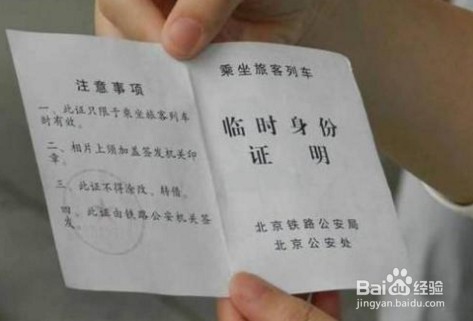 注意事项
一、此证只限于乘坐旅客列车
时有效。
二、相片上须加盖签发机关印
章。
三、此证不得涂改、转借。
四、此证由铁路公安机关签
发。
乘坐旅客列车
临时身份
证明
北京铁路公安局
北京公安处
Baidu经验
jingyan.baidu.com